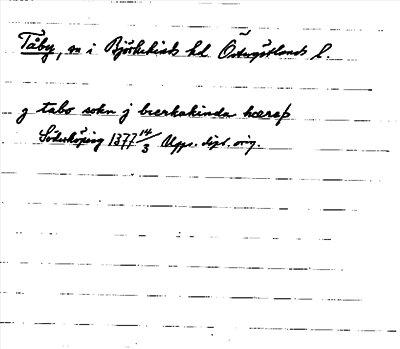 Täby, sn i Björkekinds hd Östergötlands l.
j tabo sokn j bærkakinda hæraþ
Söderköping 1377 14/3 Upps. dipl. orig.